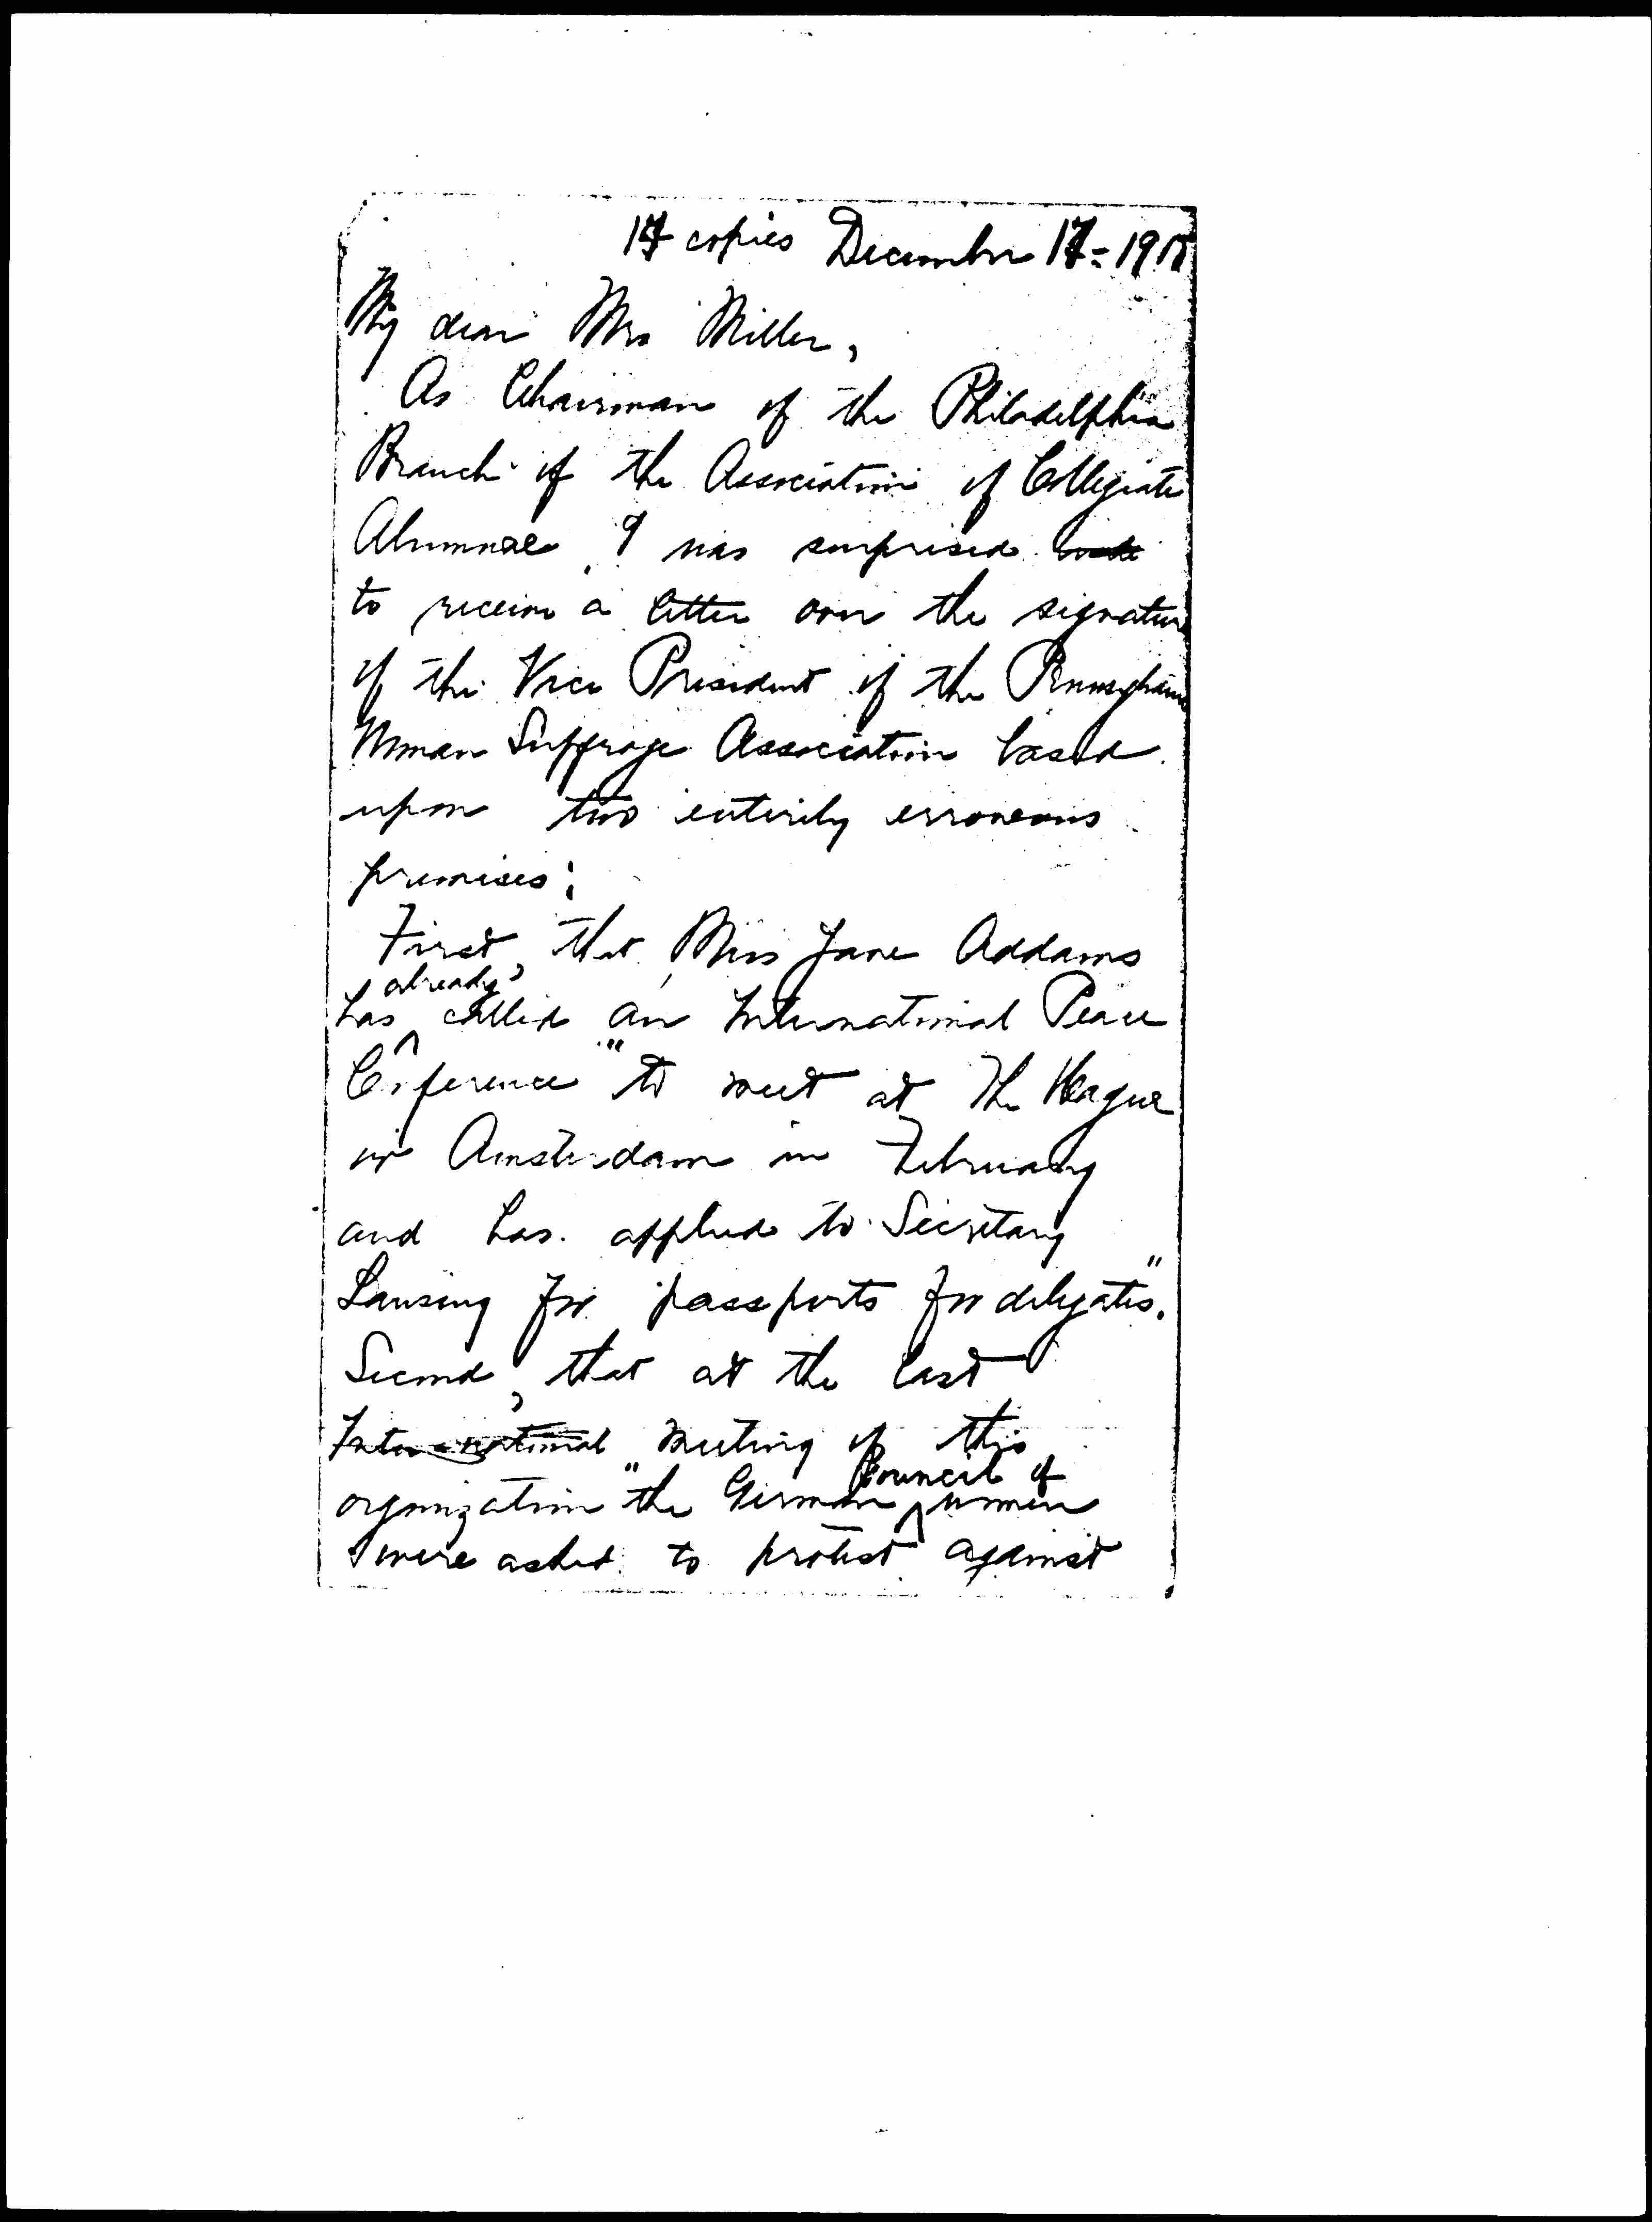 copies December 17 = 1918
My dear Mrs Miller,
As Chairman of the Philadelphia
Branch of the Association of Collegiate
Alumnae, I was surprised
to receive a letter over the signature
of the Vice President of the Pennsylvania
Woman Suffrage Association based
upon two entirely erroneous
premises:
First, that Miss Jane Addams
has already called an International Peace
Conference "to meet at The Hague
or Amsterdam in February
and has applied to Secretary
Lansing for passports for delegates."
Second, that at the last
International meeting of this
organization "the German Council of women
were asked to protest against